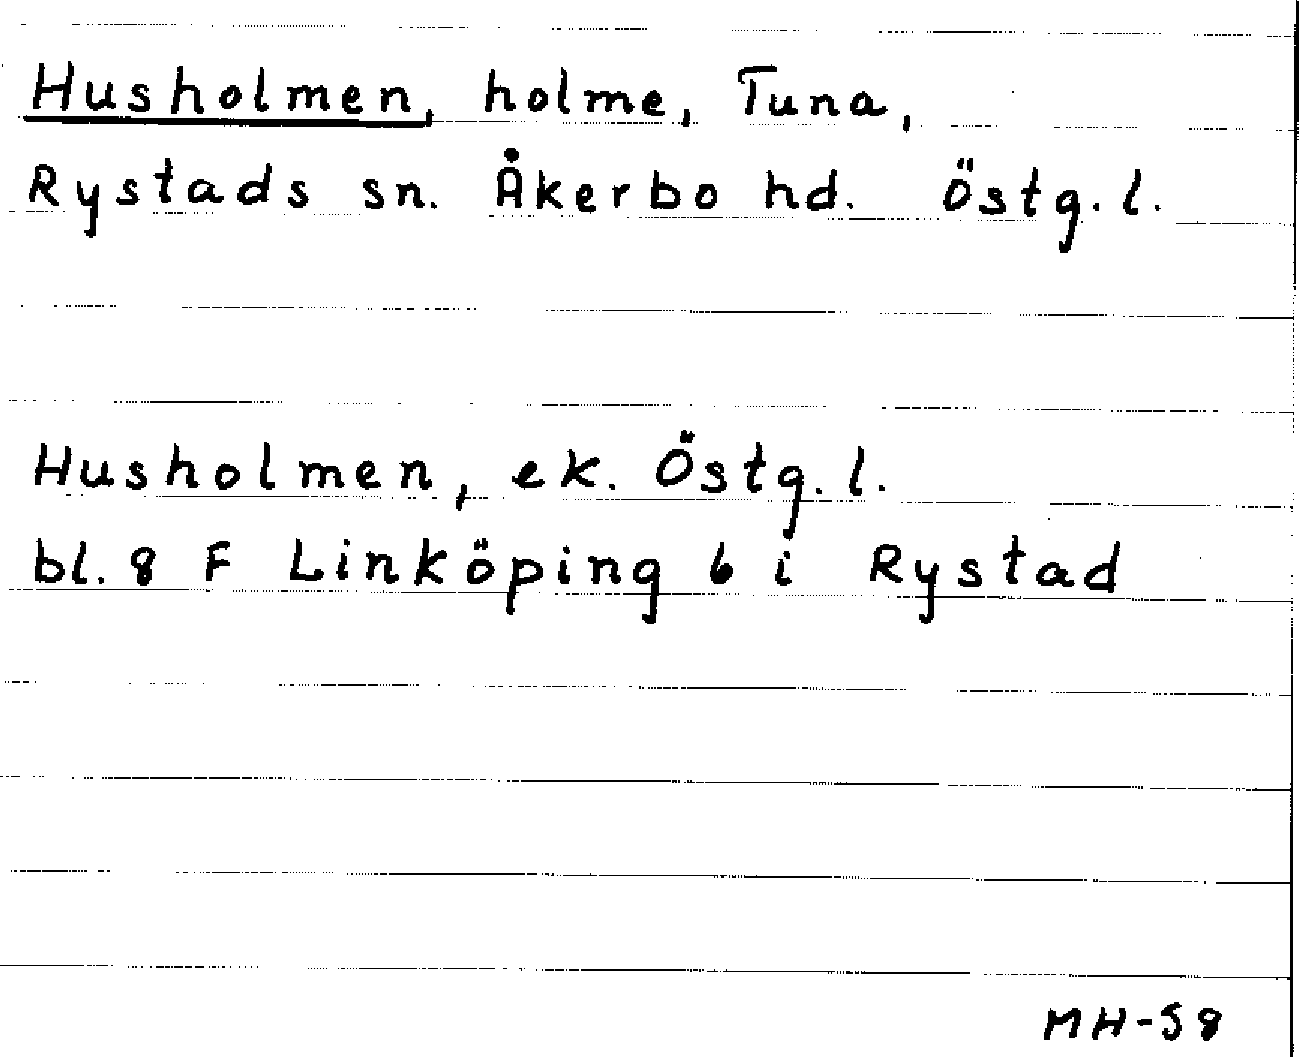 Husholmen, holme, Tuna,
Rystads sn. Åkerbo hd. Östg. l.
Husholmen, ek. Östg. l.
bl. 8 F Linköping 6 i Rystad
MH-58